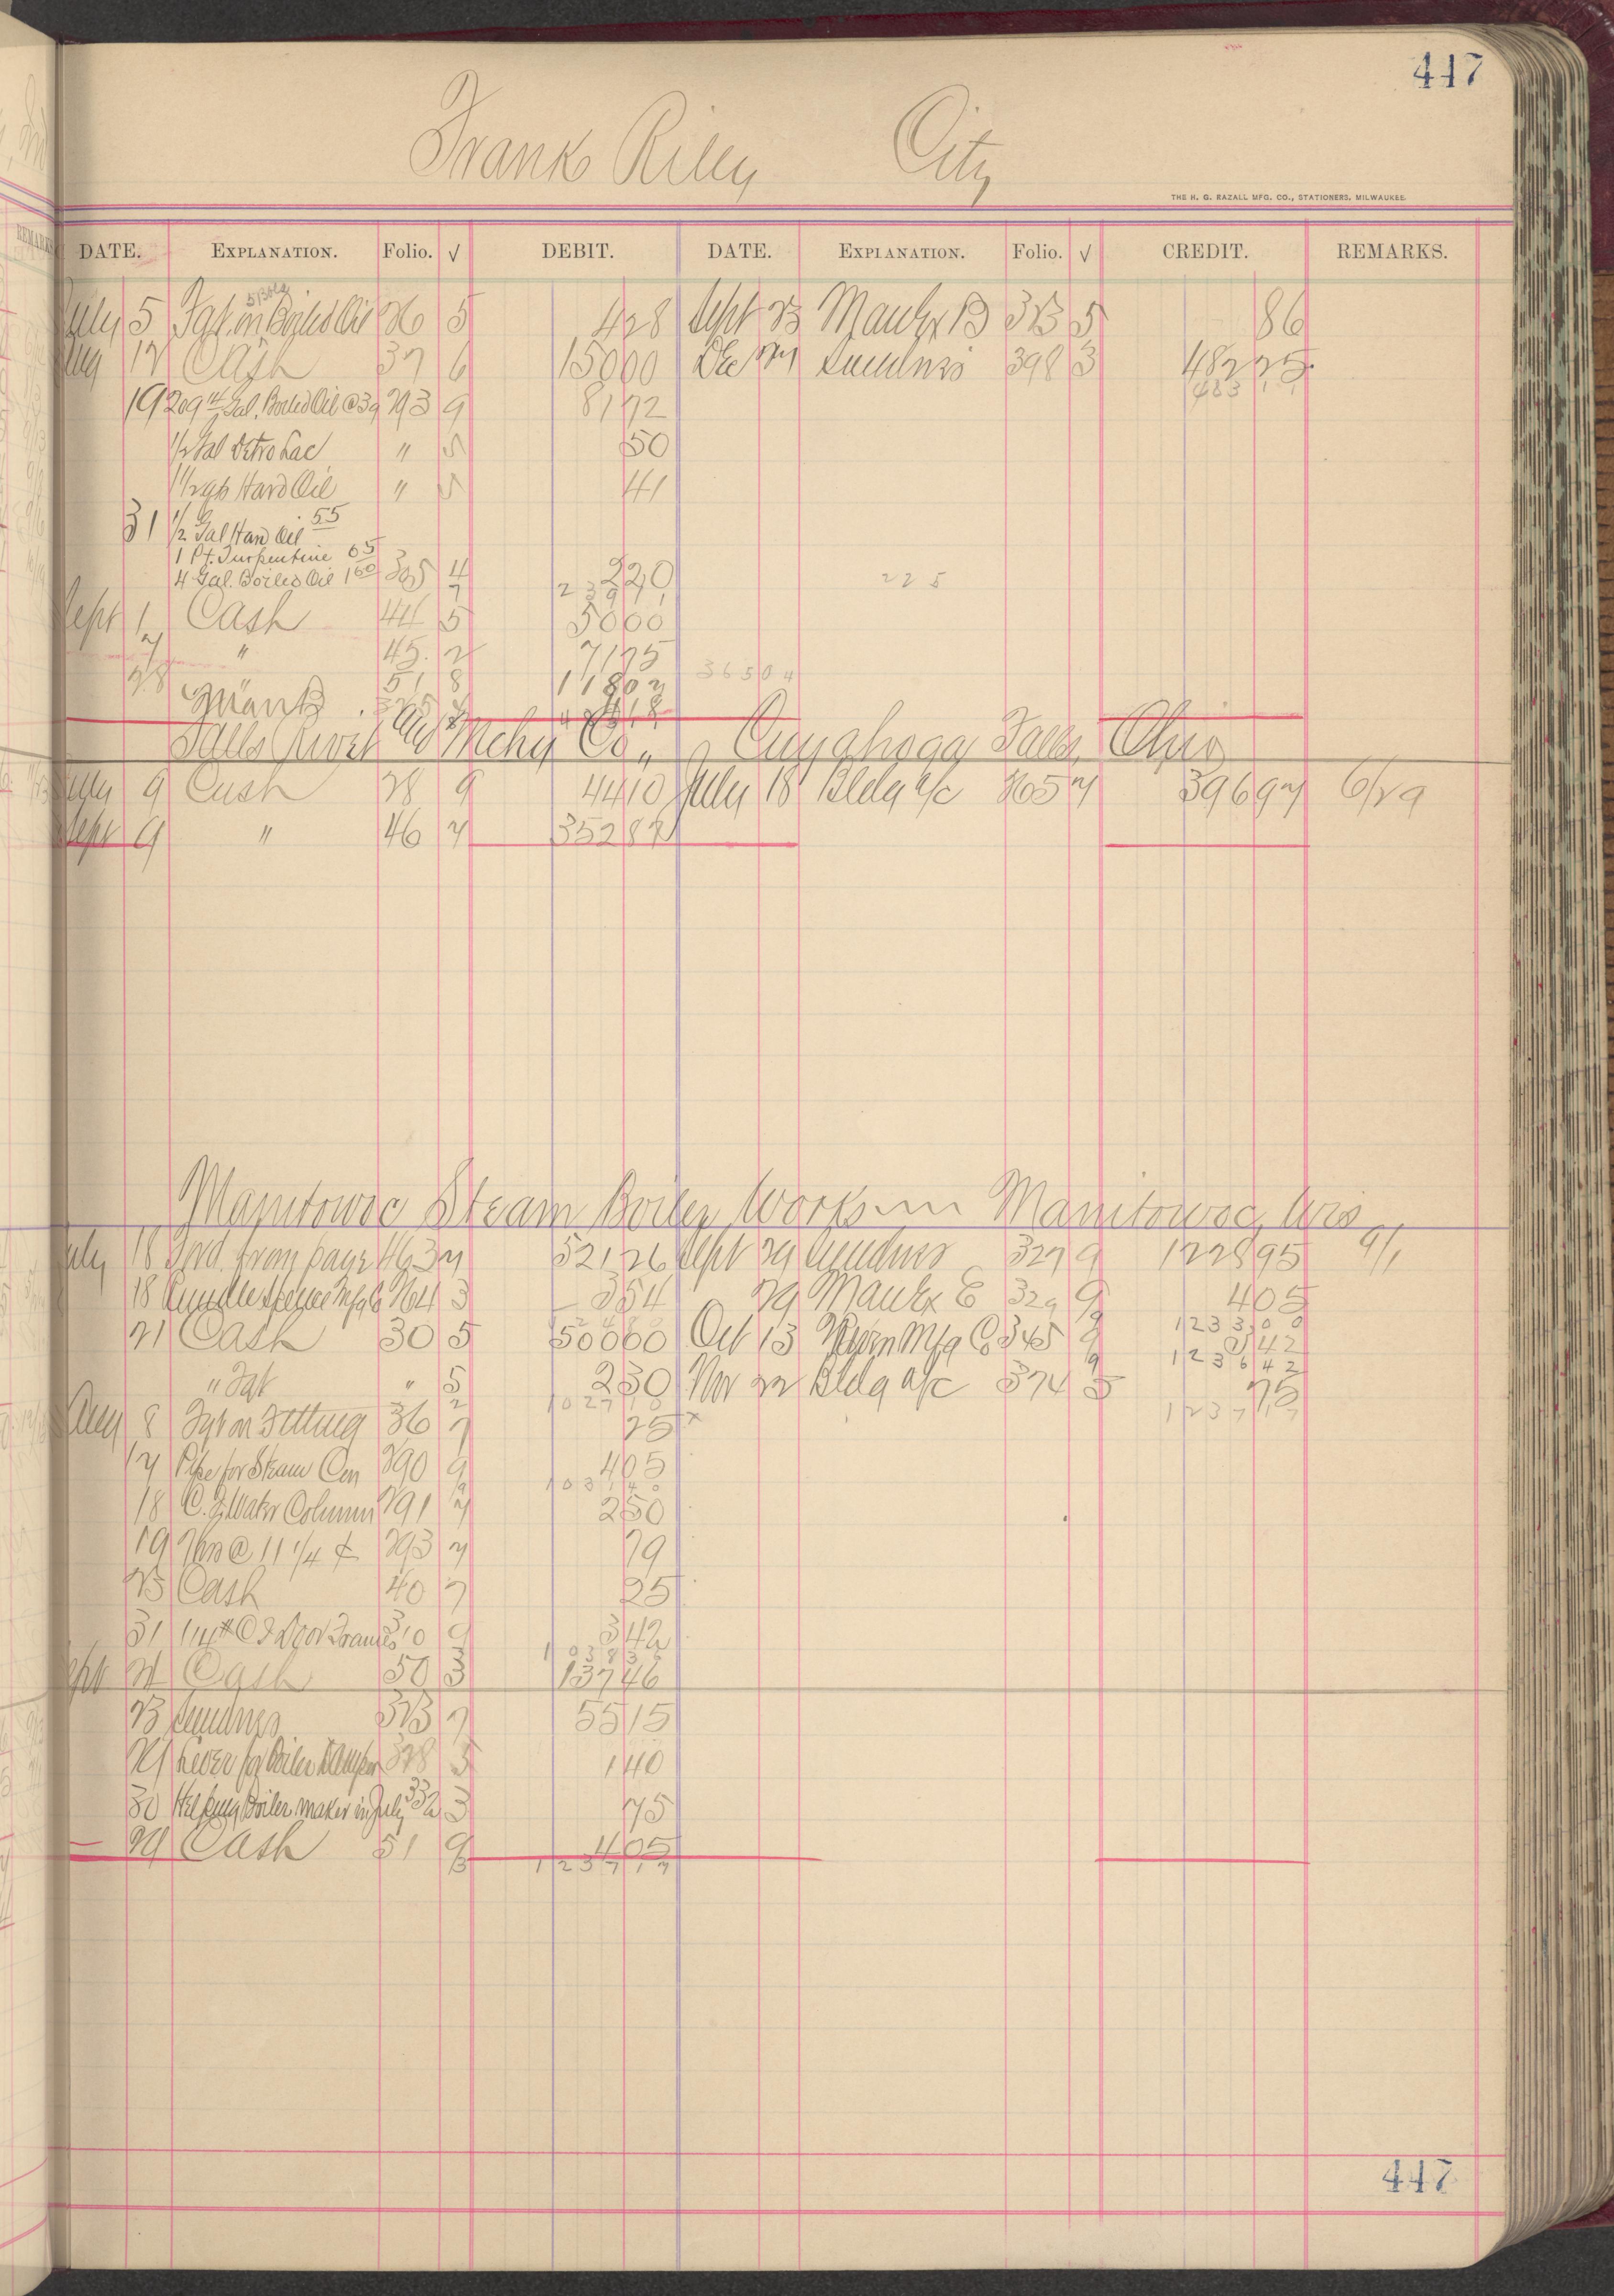 447
Frank Riley City
THE H. G. RAZALL MFG. CO., STATIONERS, MILWAUKEE.
DATE. EXPLANATION. Folio. √ DEBIT. DATE. EXPLANATION. Folio. √ CREDIT. REMARKS.
5 Bbls
July 5 Fgt. on Boiled Oil 26 5 4 28 Sept 23 Manfx B 313 5 86
Aug 17 Cash 37 6 150 00 Dec 398 3 482 25
483 11
19 209 Gal. Boiled Oil @ 39 293 9 81 72
1/2 Gal Petro Lac " 5 50
1 1/2 Hard Oil " 5 41
31 1/2 Gal Hard Oil 55
1 Pt. Turpentine 05
4 Gal. Boiled Oil 1 60 305 4 2 20
239 11
225
Sept 1 Cash 44 5 50 00
7 " 45 2 71 25
28 " 51 8 118 02
365 04
Manfx B
Falls Rivet and Mchy Co., Cuyahoga Falls, Ohio
July 9 Cash 28 9 44 10 July 18 Bldg a/c 265 7 396 97 6/29
Sept 9 " 46 7 352 87
Manitowoc Steam Boiler Works Manitowoc, Wis
July 18 Ford. from page 463 7 521 26 Sept 29 Sundries 327 9 1228 95 9/1
18 Rundle Spence Mfg Co 264 3 3 54 29 Manfx E 329 9 4 05
1233 00
21 Cash 30 5 500 00 Oct 13 Mfg Co 345 8 3 42
1236 42
" Fgt " 5 2 30 Nov 22 Bldg a/c 374 5 75
1027 10
1237 17
Aug 8 Fgt on Fitting 36 7 25
17 Pipe for Steam Con 290 9 4 05
1031 40
18 C. I. Water Column 291 7 2 50
19 7 hrs @ 11 1/4 ¢ 293 7 79
23 Cash 40 7 25
31 114# C I Door Frames 310 9 3 42
1038 36
Sept 21 Cash 50 3 137 46
23 Sundries 313 7 55 15
24 Lever for Boiler Damper 328 5 1 40
30 Helping Boiler maker in July 332 3 75
29 Cash 51 9 4 05
1237 17
447